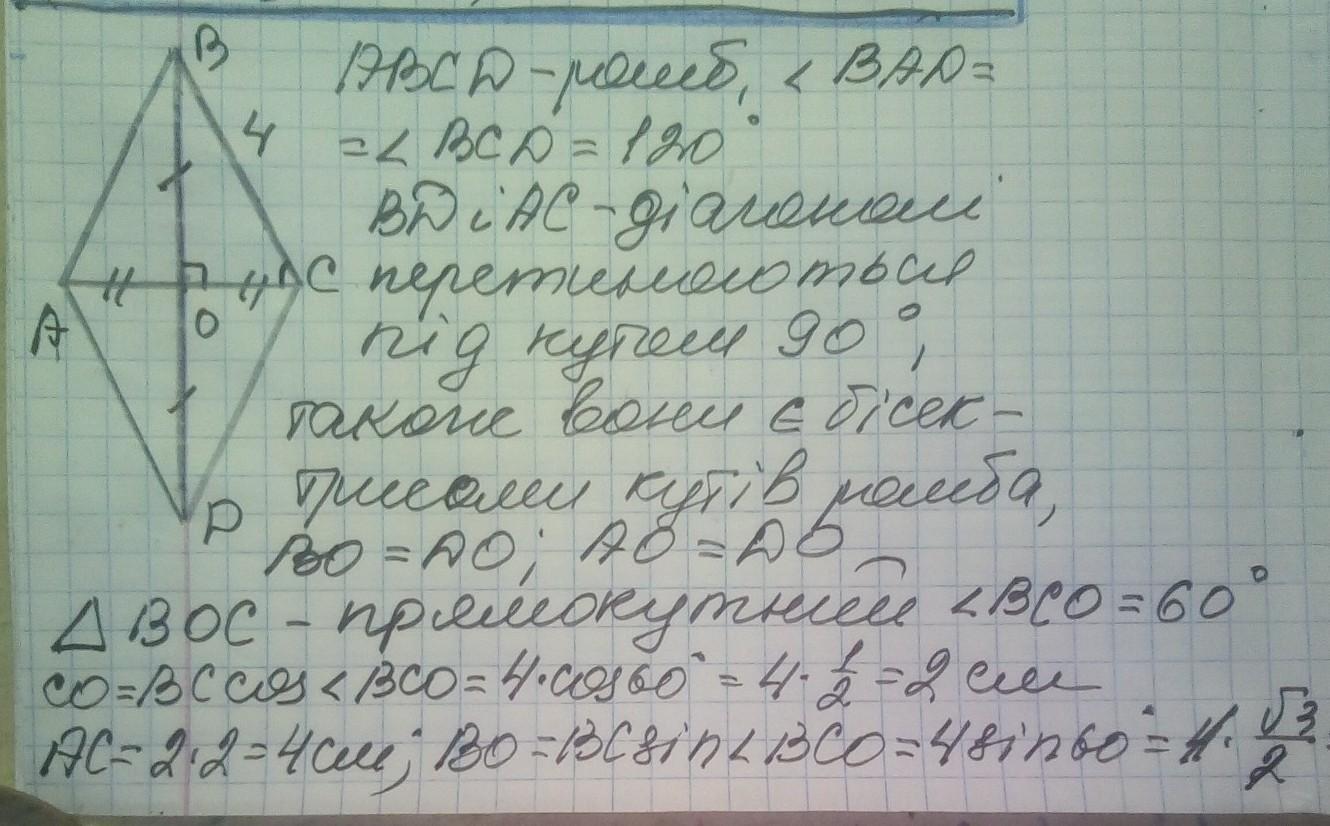 B
4
A
C
O
D
ABCD - ромб, < BAD =
= < BCD = 120°
BD i AC - діагоналі
перетинаються
під кутом 90°,
також вони є бісек-
трисами кутів ромба,
BO = DO; AO = DO
△ BOC - прямокутний < BCO = 60°
CO = BC cos < BCO = 4 · cos 60° = 4 · 1/2 = 2 см
AC = 2 · 2 = 4 см; BO = BC sin < BCO = 4 sin 60° = 4 · √3/2